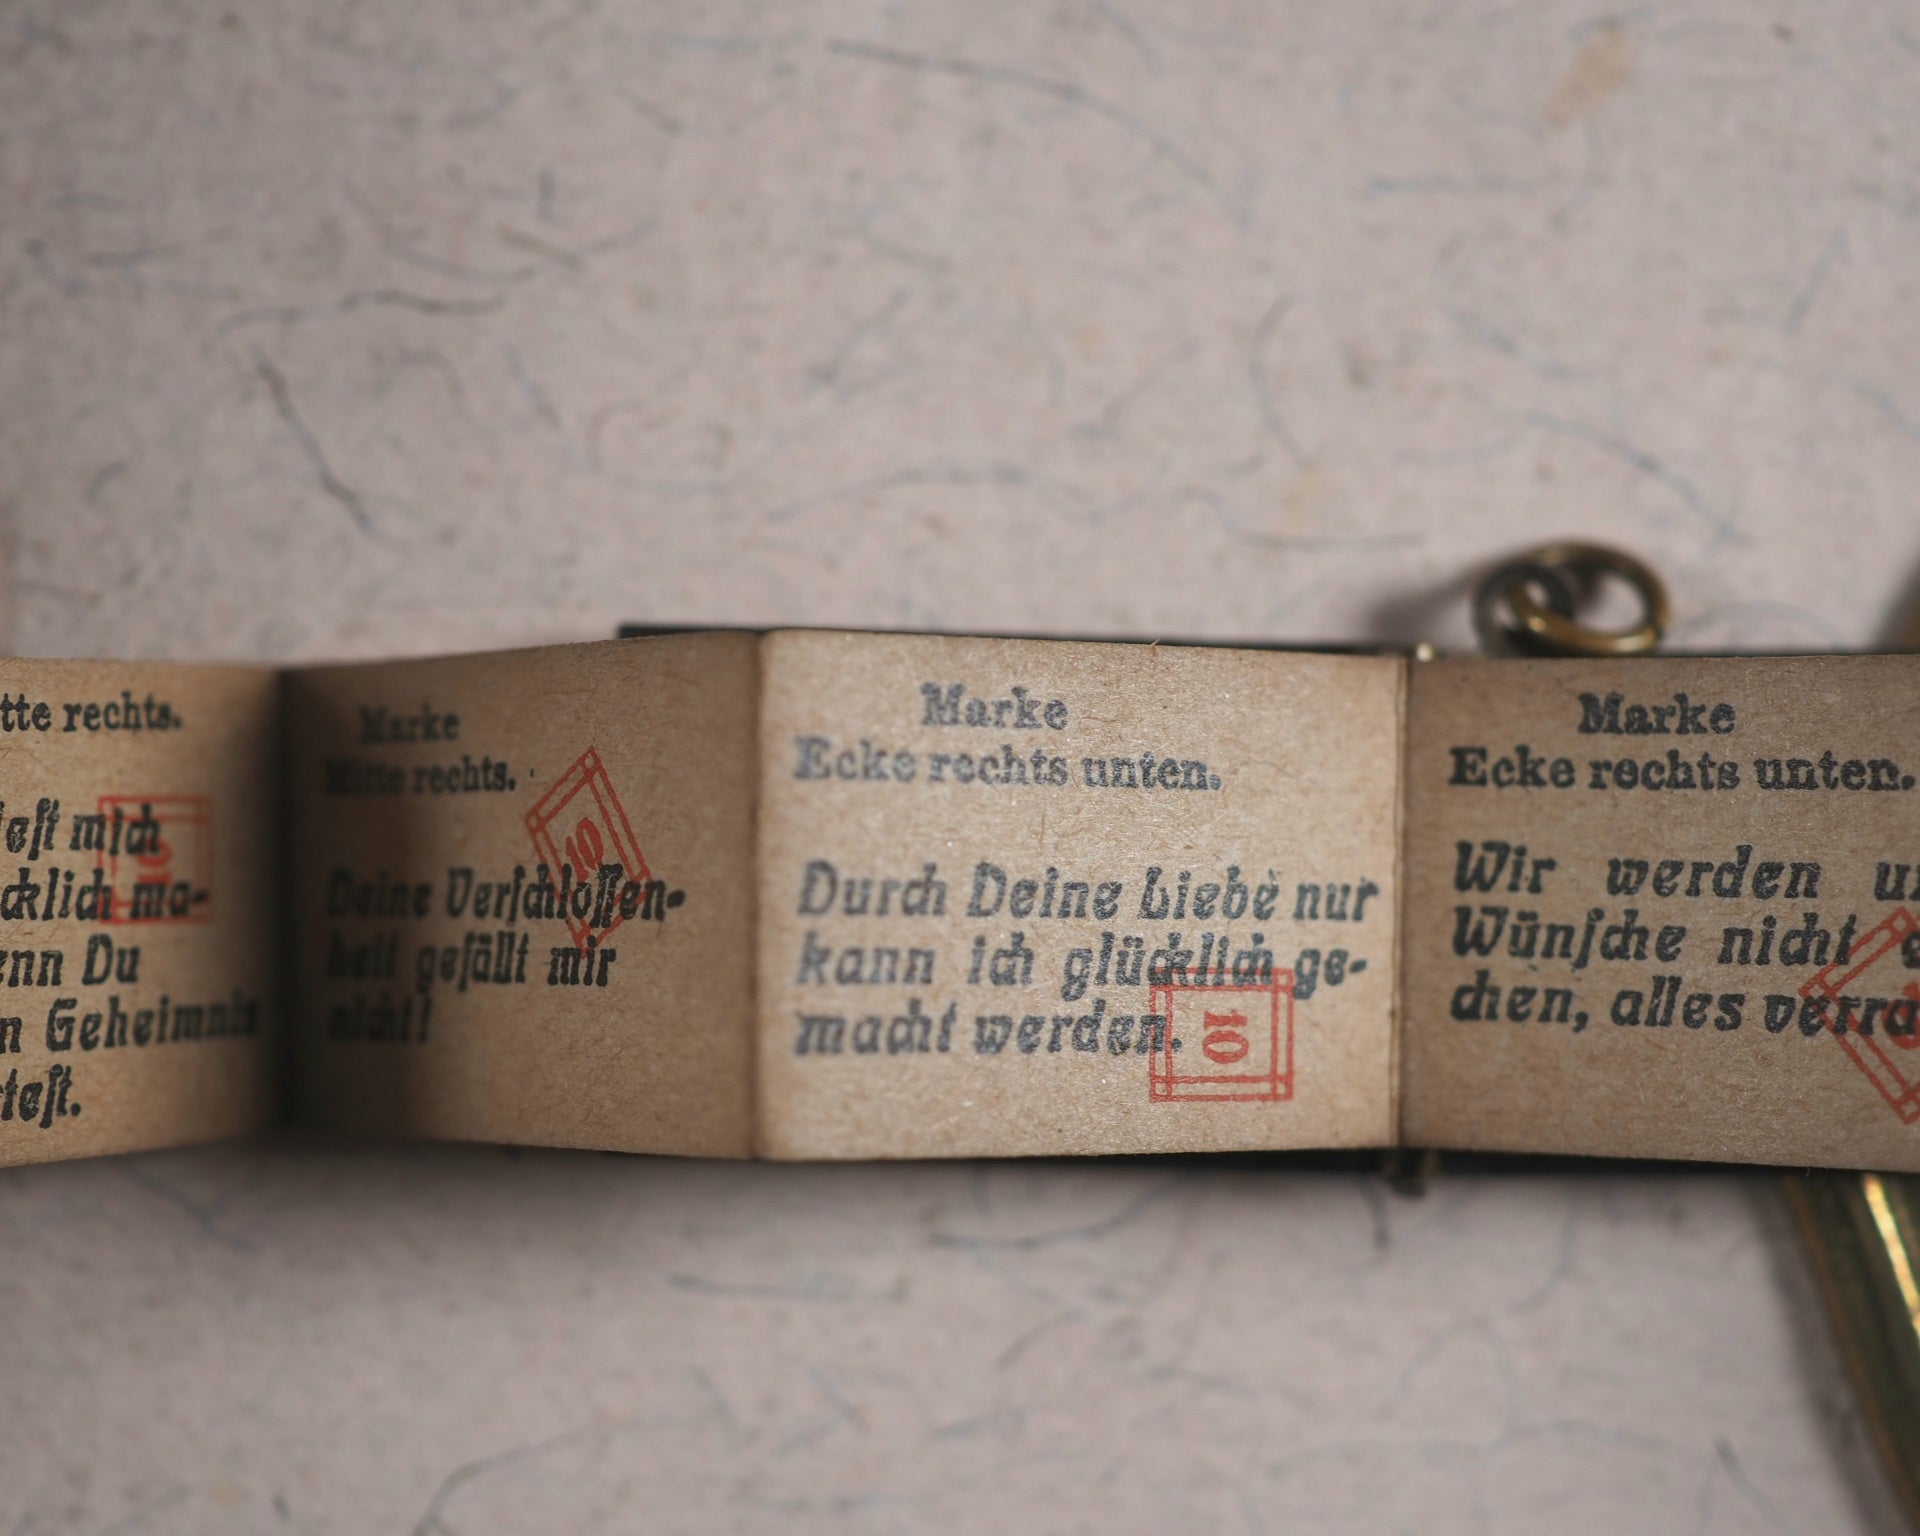 tte rechts.
eſt mich
cklich ma-
enn Du
n Geheimnis
teſt.
Marke
Mitte rechts.
10
Deine Verſchloſſen-
heit gefällt mir
nicht!
Marke
Ecke rechts unten.
Durch Deine Liebe nur
kann ich glücklich ge-
macht werden.
10
Marke
Ecke rechts unten.
Wir werden un
Wünſche nicht e
chen, alles verra